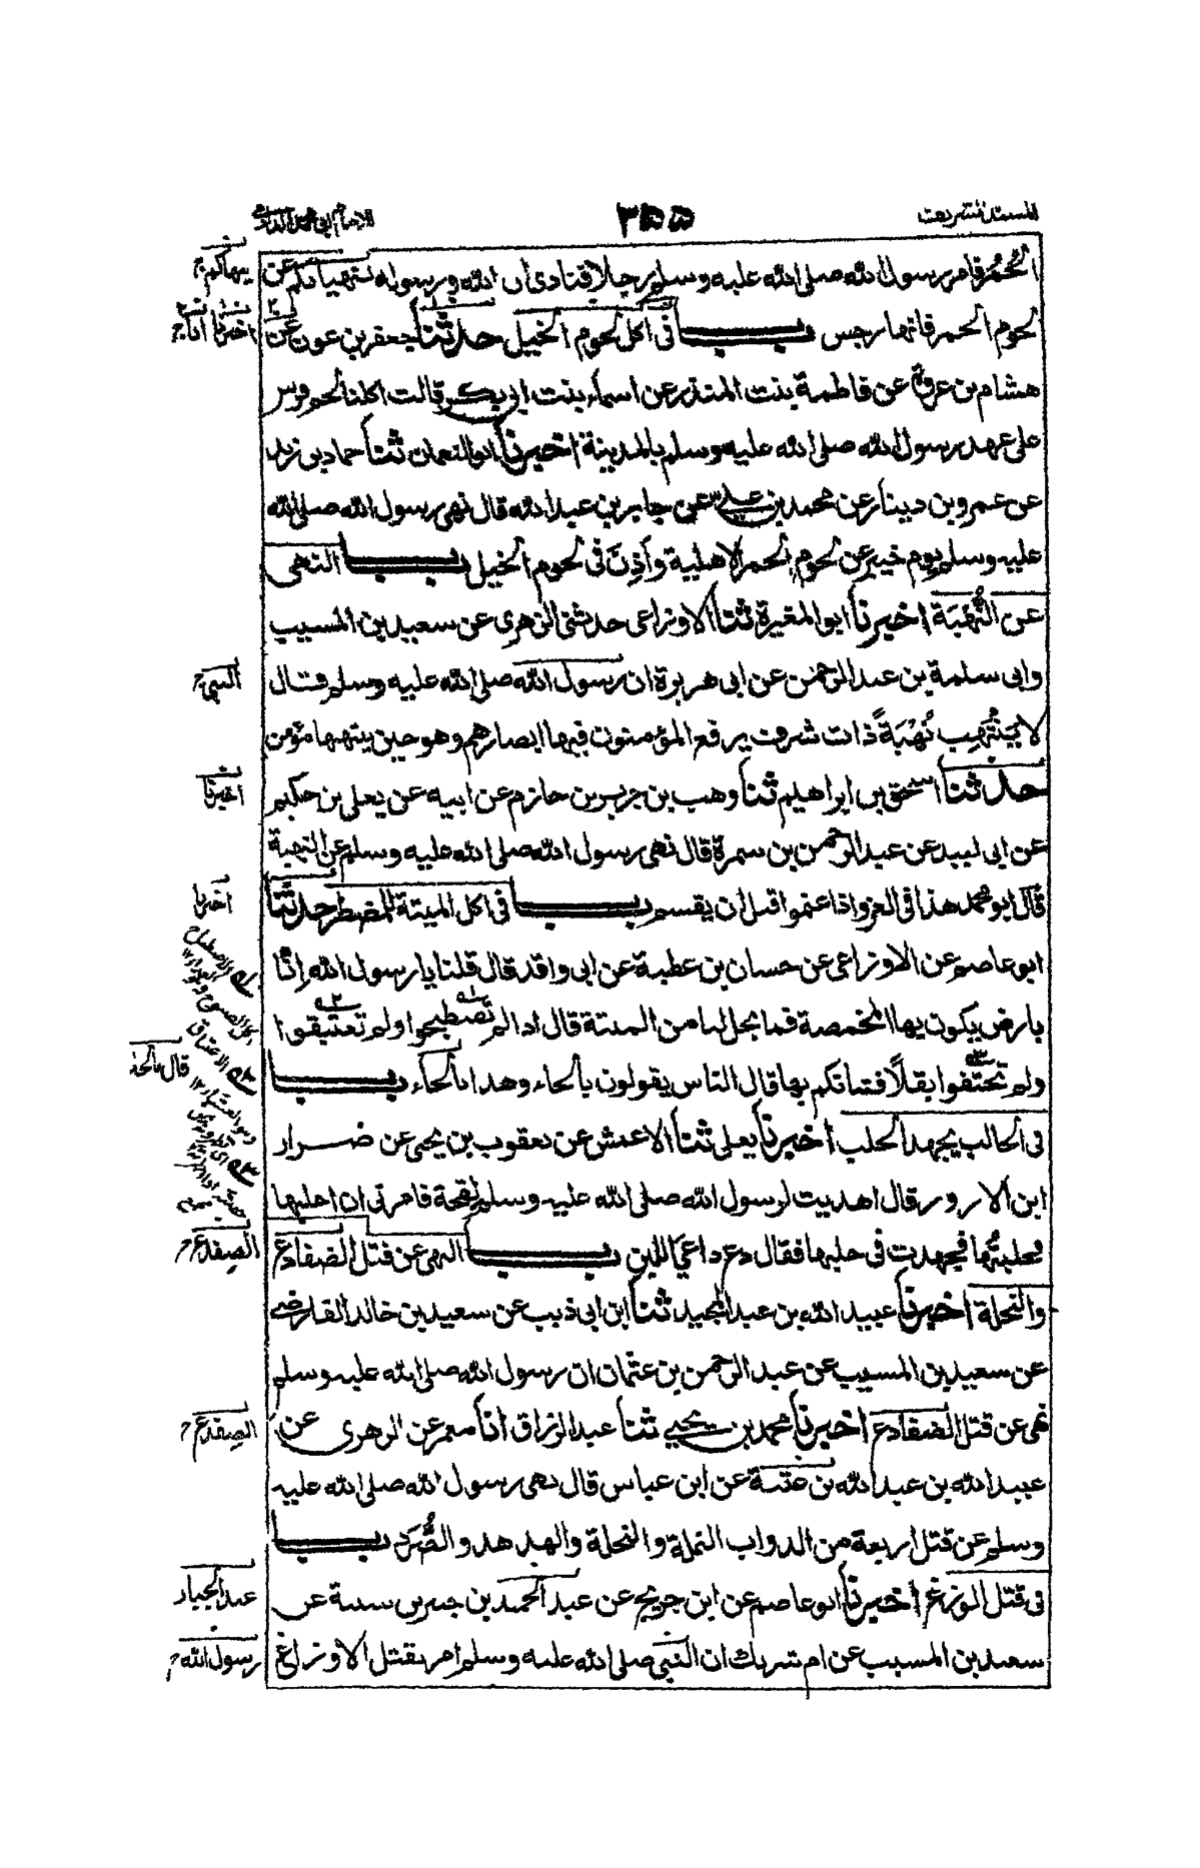 المسند الشريف
٢٥٥
للامام ابي محمد الدارمي
الحُمُر فامر رسول الله صلى الله عليه وسلم رجلا فنادى ان الله ورسوله ينهيانكم عن
لحوم الحمر فانها رجس باب فى اكل لحوم الخيل حدثنا جعفر بن عون عن
هشام بن عروة عن فاطمة بنت المنذر عن اسماء بنت ابى بكر قالت اكلنا لحم فرس
على عهد رسول الله صلى الله عليه وسلم بالمدينة اخبرنا ابو النعمان ثنا حماد بن زيد
عن عمرو بن دينار عن محمد بن علي عن جابر بن عبد الله قال نهى رسول الله صلى الله
عليه وسلم يوم خيبر عن لحوم الحمر الاهلية وأَذِنَ فى لحوم الخيل باب النهى
عن النُّهْبَة اخبرنا ابو المغيرة ثنا الاوزاعى حدثنى الزهرى عن سعيد بن المسيب
وابى سلمة بن عبد الرحمن عن ابى هريرة ان رسول الله صلى الله عليه وسلم قال
لا يَنْتَهِب نُهْبَةً ذات شرف يرفع المؤمنون فيها ابصارهم وهو حين ينتهبها مؤمن
حدثنا اسحق بن ابراهيم ثنا وهب بن جرير بن حازم عن ابيه عن يعلى بن حكيم
عن ابى لبيد عن عبد الرحمن بن سمرة قال نهى رسول الله صلى الله عليه وسلم عن النهبة
قال ابو محمد هذا فى الغزو اذا غنموا قبل ان يقسم باب فى اكل الميتة للمضطر حدثنا
ابو عاصم عن الاوزاعى عن حسان بن عطية عن ابى واقد قال قلنا يا رسول الله اِنّا
بارض يكون بها المخمصة فما يحل لنا من الميتة قال اذا لم تصطبحوا ولم تغتبقوا
ولم تختفوا بقلاً فشانكم بها قال الناس يقولون بالحاء وهذا بالخاء باب
فى الحالب يجهد الحلب اخبرنا يعلى ثنا الاعمش عن يعقوب بن يحيى عن ضرار
ابن الازور قال اهديت لرسول الله صلى الله عليه وسلم لقحة فامرنى ان احلبها
فحلبتُها فجهدت فى حلبها فقال دع داعيَ اللبن باب النهى عن قتل الضفادع
والنحلة اخبرنا عبيد الله بن عبد المجيد ثنا ابن ابى ذيب عن سعيد بن خالد القارضى
عن سعيد بن المسيب عن عبد الرحمن بن عثمان ان رسول الله صلى الله عليه وسلم
نهى عن قتل الضفادع اخبرنا محمد بن يحيى ثنا عبد الرزاق انا معمر عن الزهرى عن
عبيد الله بن عبد الله بن عتبة عن ابن عباس قال نهى رسول الله صلى الله عليه
وسلم عن قتل اربعة من الدواب النملة والنحلة والهدهد والصُّرَد باب
فى قتل الوزغ اخبرنا ابو عاصم عن ابن جريج عن عبد الحميد بن جبير بن شيبة عن
سعيد بن المسيب عن ام شريك ان النبي صلى الله عليه وسلم امر بقتل الاوزاغ
ينهاكم
اخبرنا انا
النبي
اخبرنا
اخبرنا
قال بالخاء
الصِفدع
الصِفدع
عبد الجبار
رسول الله